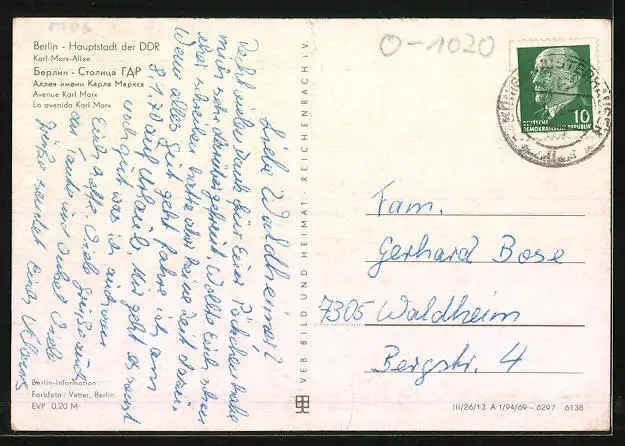 Berlin - Hauptstadt der DDR
Karl-Marx-Allee
Берлин - Столица ГДР
Аллея имени Карла Маркса
Avenue Karl Marx
La avenida Karl Marx
Liebe Waldheimer!
Recht vielen Dank für Euer Päckchen habe
mich sehr darüber gefreut. Wollte Euch schon
eher schreiben hatte aber keine Zeit dazu.
Wenn alles gut geht fahre ich am
8.1.70 auf Urlaub. Mir geht es sonst
noch gut was ich auch von
Euch hoffe. Viele Grüße auch
an Tante und Onkel. Viele
Grüße sendet Euch Klaus
Berlin-Information
Farbfoto: Vetter, Berlin
EVP 0,20 M
VEB BILD UND HEIMAT REICHENBACH i. V.
O-1020
10
DEUTSCHE
DEMOKRATISCHE REPUBLIK
Fam.
Gerhard Bose
7305 Waldheim
Bergstr. 4
III/26/13 A 1/94/69 - 6297 6138